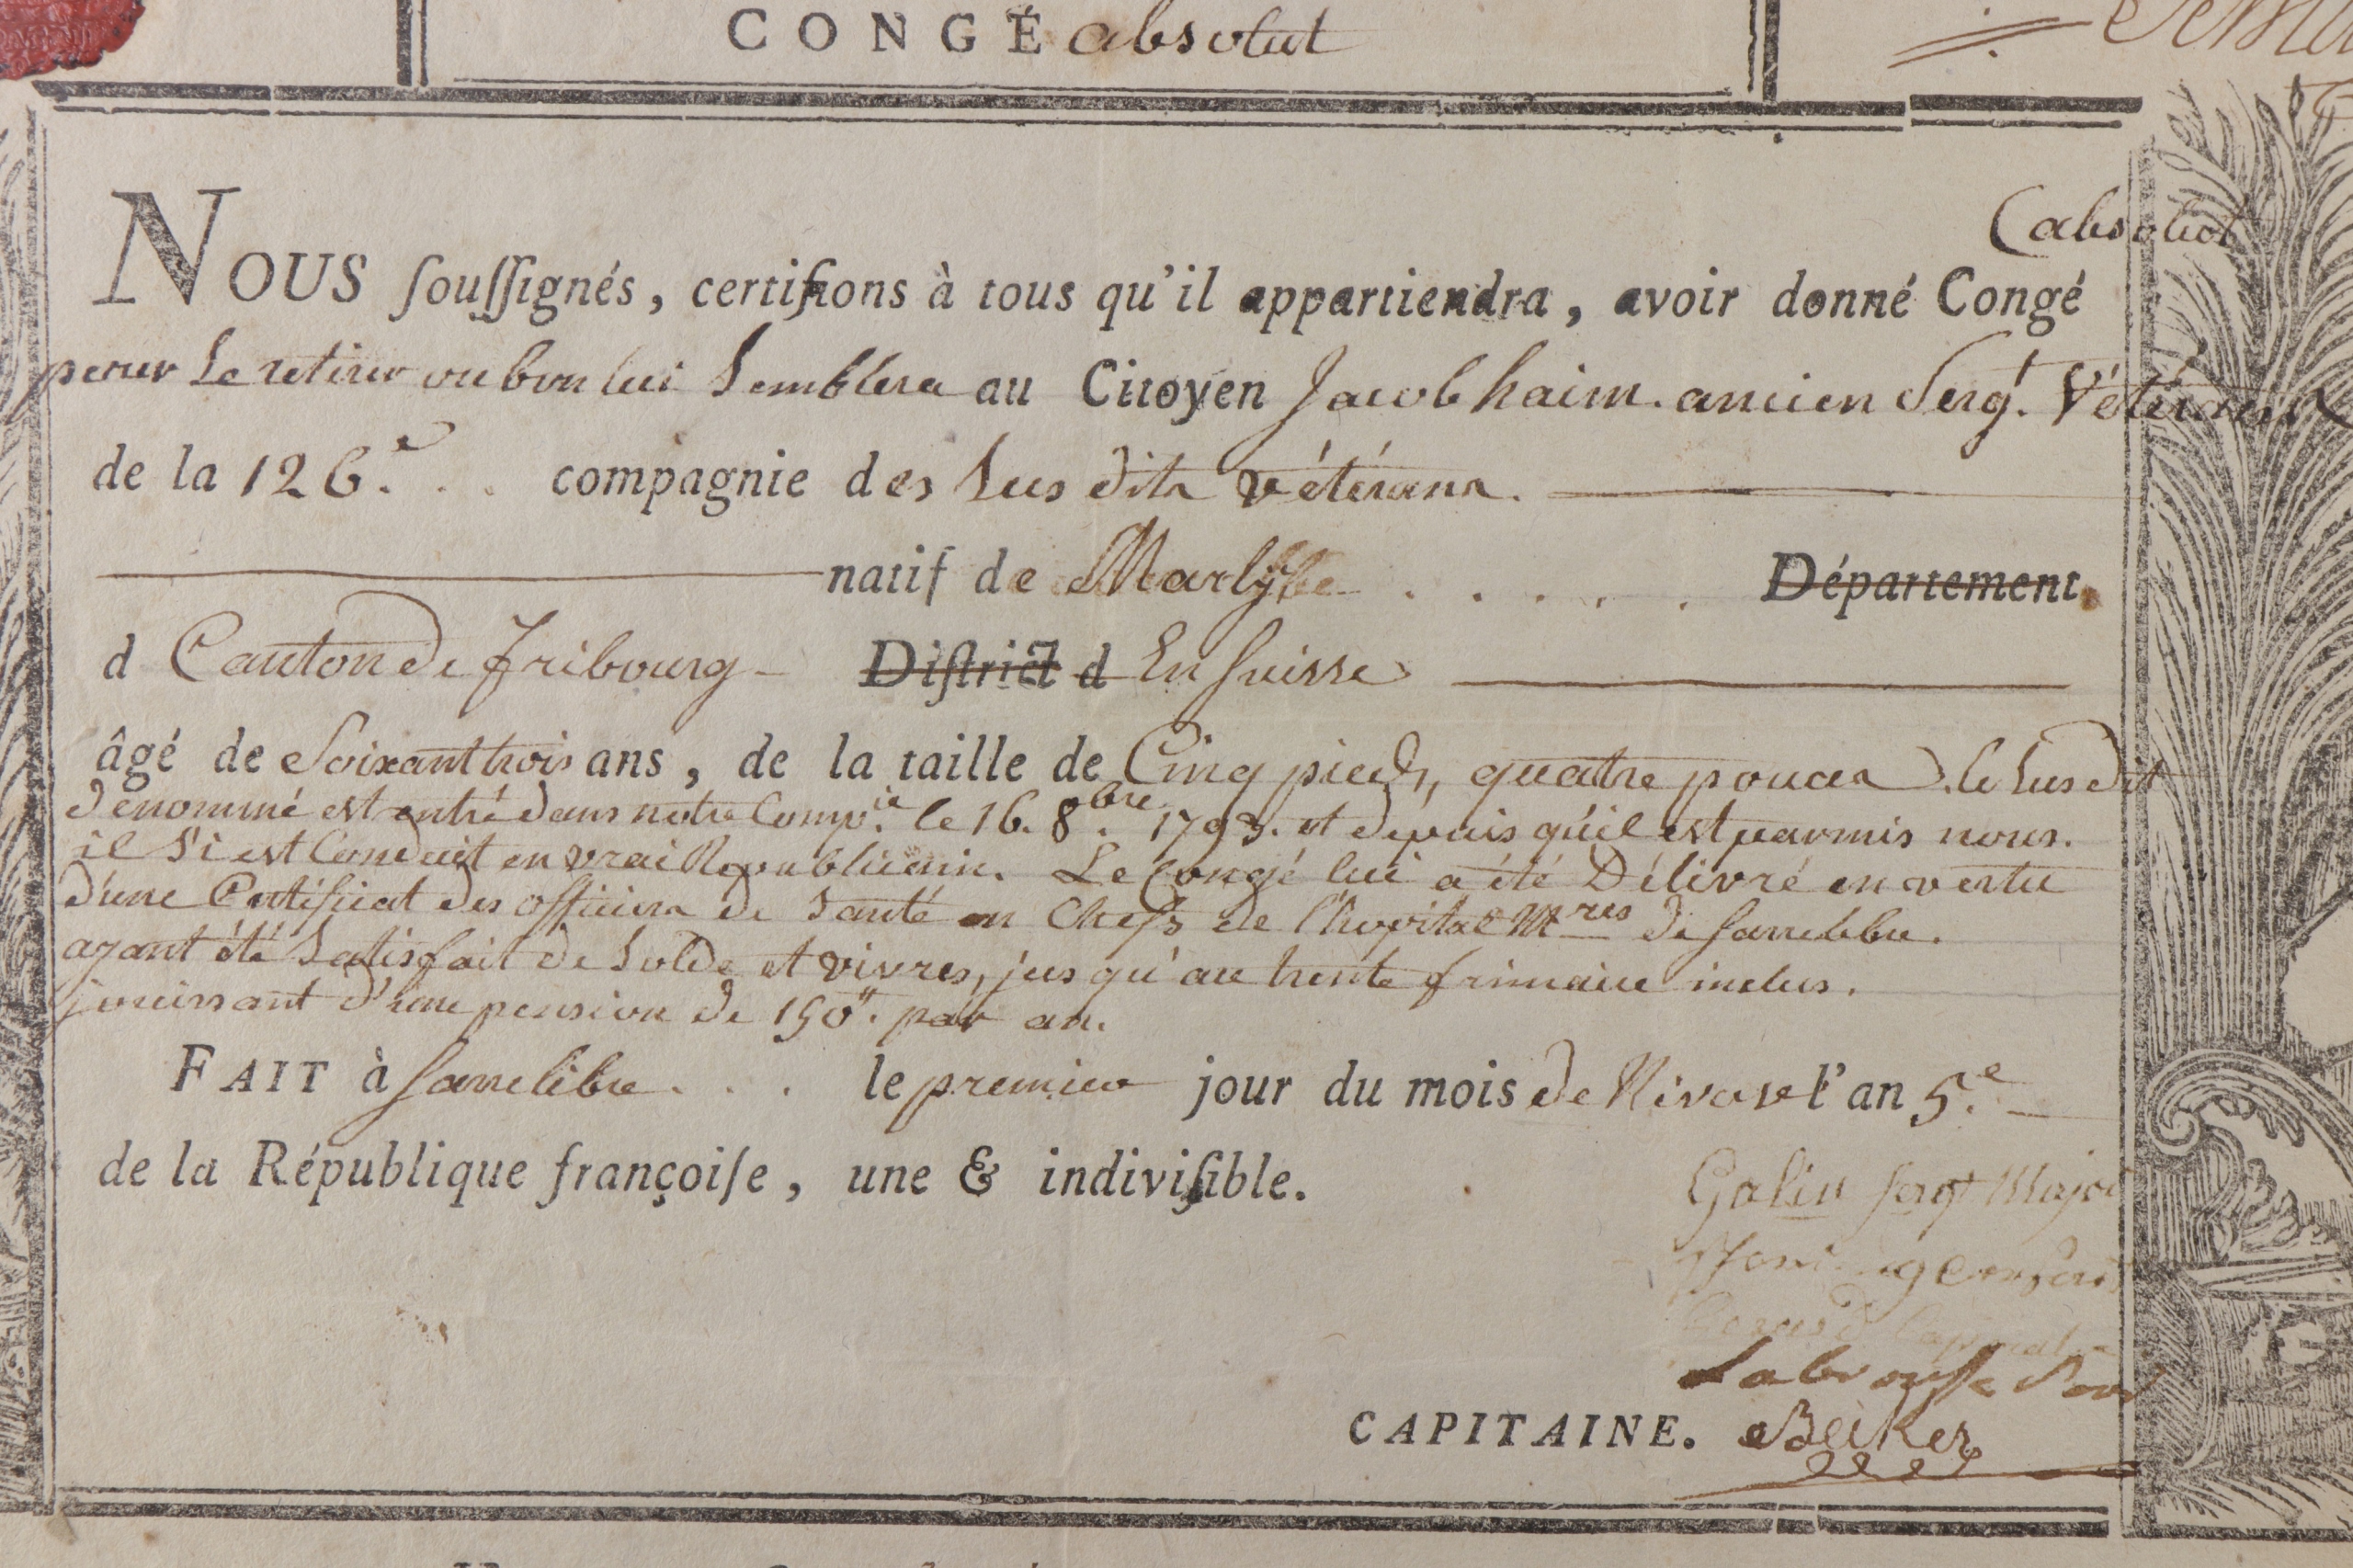 CONGÉ absolut
(absolut
NOUS souſſignés, certifions à tous qu'il appartiendra, avoir donné Congé
pour Se retirer ou bon lui Semblera au Citoyen Jacob haim. ancien Sergt. Vétérans
de la 126.e . . compagnie des Sus dits vétérans.
natif de Marly . . . . . Département
d Canton de fribourg - Diſtrict d En Suisse
âgé de Soixant trois ans, de la taille de Cinq pieds, quatre pouces. le Sus dit
dénommé est entré dans notre Comp.ie le 16. 8.bre 1793. et depuis qu'il est parmis nous.
il S'i est Conduit en vrai Republicain. Le Congé lui a été Délivré en vertu
d'une Certificat des officiers de Santé en Chefs de l'hopital Mres de Sarrelibre.
ayant été Satisfait de Solde et vivres, jus qu'au trente frimaire inclus.
jouissant d'une pension de 150tt. par an.
FAIT à Sarrelibre . . . le premier jour du mois de Nivose l'an 5.e
de la République françoiſe, une & indiviſible.
Galin Sergt Major
Labrousse
CAPITAINE. Beiker